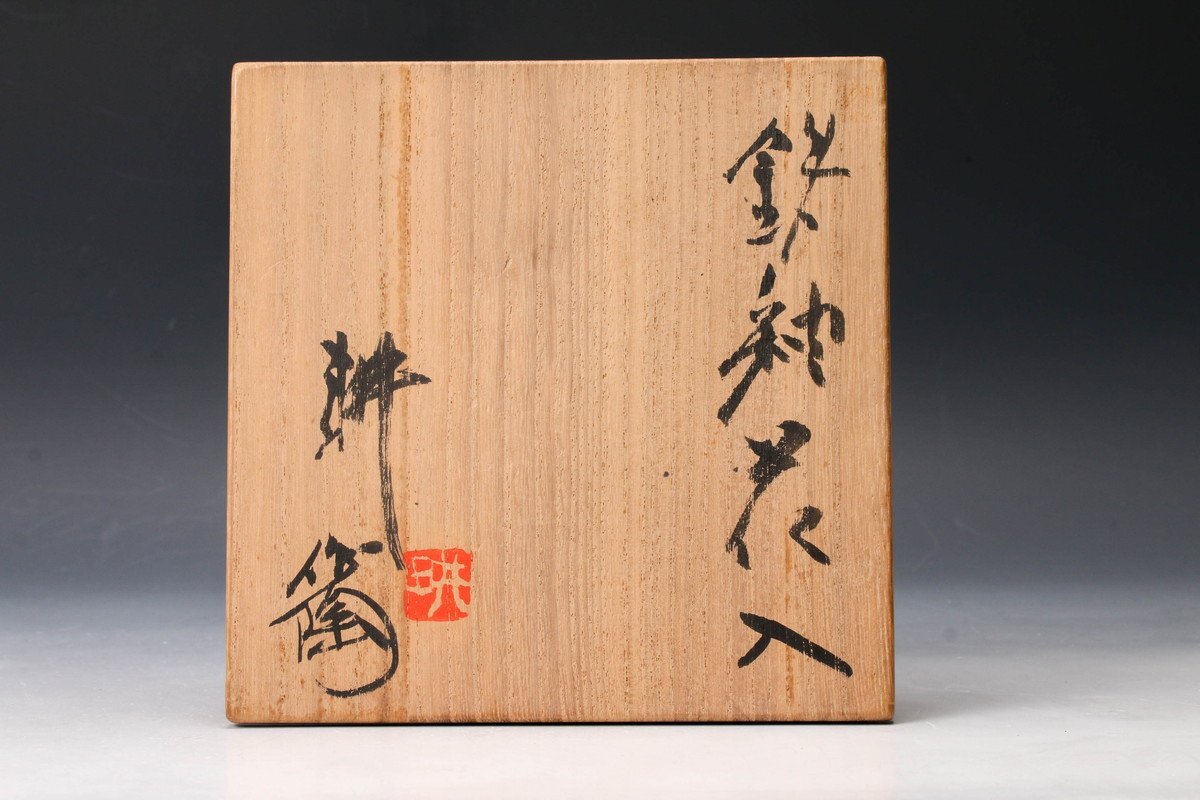 鉄釉花入
耕